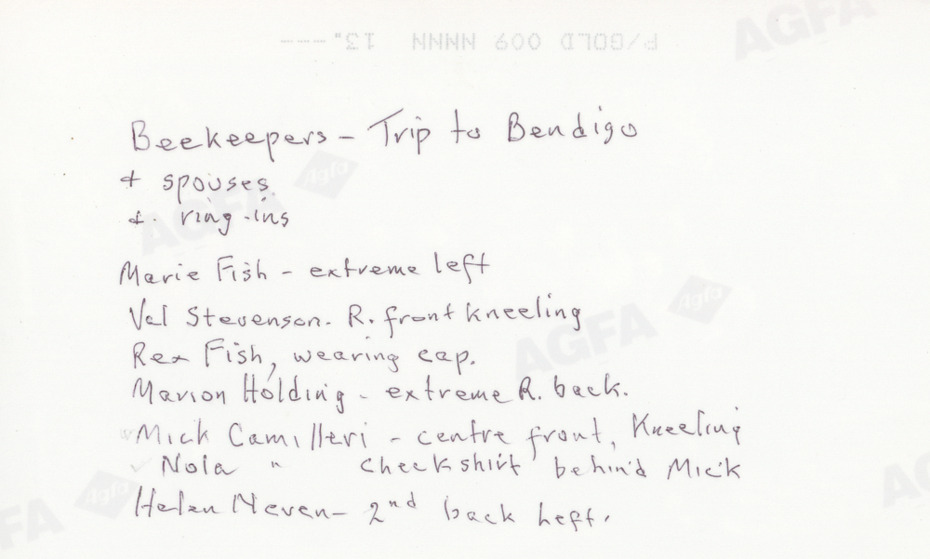 P/GOLD 009 NNNN 13" ---
AGFA
Beekeepers - Trip to Bendigo
+ spouses
+ ring-ins
Agfa
AGFA
Marie Fish - extreme left
Val Stevenson. R. front kneeling
Agfa
AGFA
Rex Fish, wearing cap.
Marion Holding - extreme R. back.
Mick Camilleri - centre front, Kneeling
Nola " check shirt behind Mick
Agfa
AGFA
Helen Neven - 2nd back left.